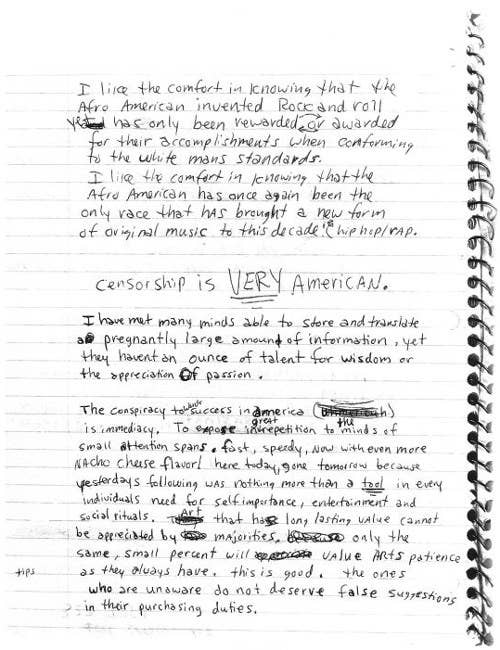 I like the comfort in knowing that the
Afro American invented Rock and roll
yet has only been rewarded or awarded
for their accomplishments when conforming
to the white mans standards.
I like the comfort in knowing that the
Afro American has once again been the
only race that HAS brought a new form
of original music to this decade is (hip hop/rap.
censorship is VERY American.
I have met many minds able to store and translate
a pregnantly large amount of information, yet
they havent an ounce of talent for wisdom or
the appreciation of passion.
The conspiracy to success in america
is immediacy. To expose in great repetition to the minds of
small attention spans. fast, speedy, now with even more
NAcho cheese flavor! here today, gone tomorrow because
yesterdays following was nothing more than a tool in every
individuals need for self importance, entertainment and
social rituals. Art that has long lasting value cannot
be appreciated by majorities. only the
same, small percent will value ARts patience
as they always have. this is good. the ones
tips
who are unaware do not deserve false suggestions
in their purchasing duties.